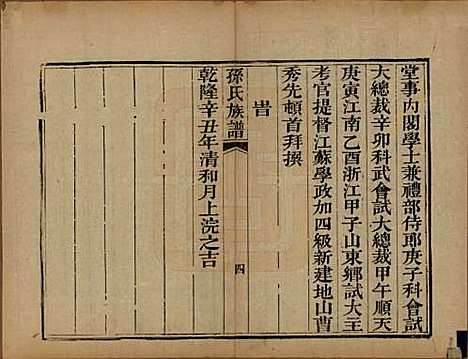 堂事內閣學士兼禮部侍郎庚子科會試
大總裁辛卯科武會試大總裁甲午順天
庚寅江南乙酉浙江甲子山東鄉試大王
考官提督江蘇學政加四級新建地山曹
秀先頓首拜撰
旹
孫氏族譜
四
乾隆辛丑年清和月上浣之吉